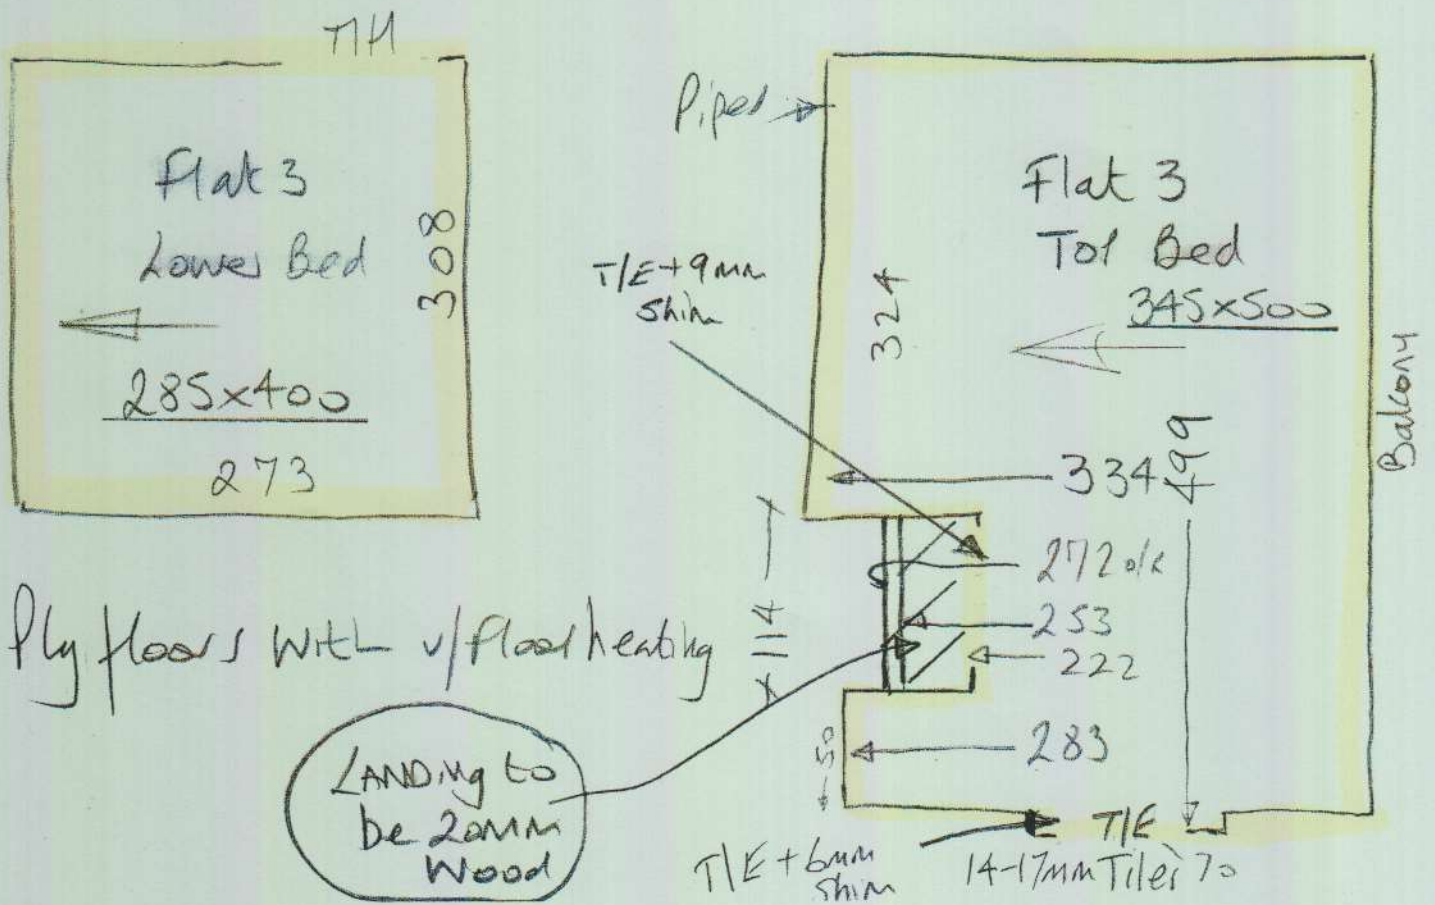 Flat 3
Lower Bed
308
285x400
273
Pipes
Flat 3
Top Bed
345x500
T/E+9mm
Shim
324
Balcony
334
499
272 o/k
253
222
283
114
50
Ply floors with u/floor heating
LANDing to
be 20mm
Wood
T/E+6mm
Shim
T/E
14-17mm Tiles 70